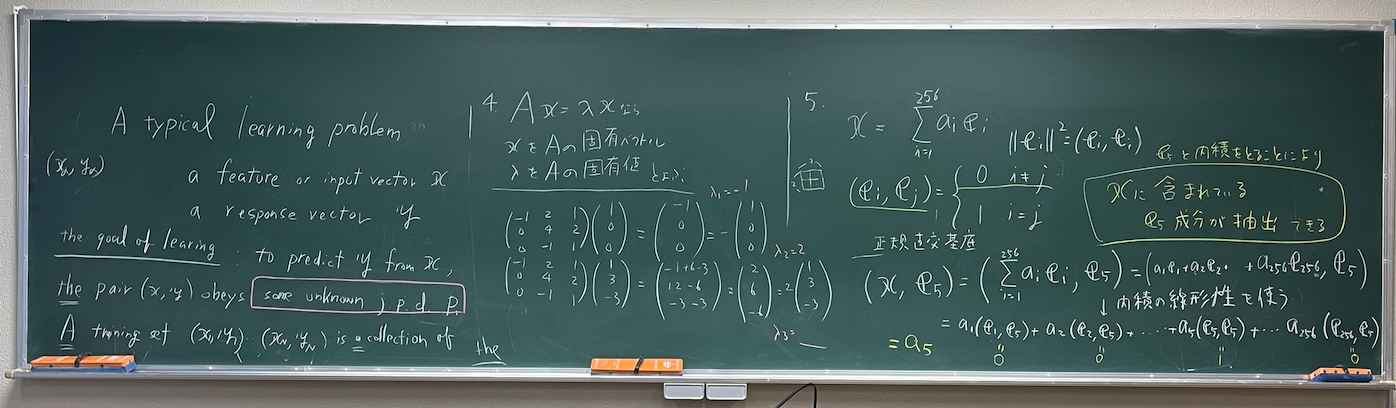 A typical learning problem
(x_N, y_N)
a feature or input vector x
a response vector y
the goal of learing : to predict y from x,
the pair (x, y) obeys some unknown j. p. d. P.
A training set (x_1, y_1) … (x_N, y_N) is a collection of the
4. Ax = λx なら
xをAの固有ベクトル
λをAの固有値とよぶ
λ_1 = -1
(-1 2 1; 0 4 2; 0 -1 1)(1; 0; 0) = (-1; 0; 0) = -(1; 0; 0)
λ_2 = 2
(-1 2 1; 0 4 2; 0 -1 1)(1; 3; -3) = (-1+6-3; 12-6; -3-3) = (2; 6; -6) = 2(1; 3; -3)
λ_3 =
5.
x = Σ_{i=1}^{256} a_i e_i
||e_i||^2 = (e_i, e_i)
(e_i, e_j) = { 0 i≠j
1 i=j
正規直交基底
e_5 と内積をとることにより
xに含まれている
e_5 成分が抽出できる
(x, e_5) = (Σ_{i=1}^{256} a_i e_i, e_5) = (a_1 e_1 + a_2 e_2 ‥ + a_256 e_256, e_5)
↓ 内積の線形性を使う
= a_1(e_1, e_5) + a_2(e_2, e_5) + ‥‥ + a_5(e_5, e_5) + ‥ a_256(e_256, e_5)
= a_5
0 0 1 0